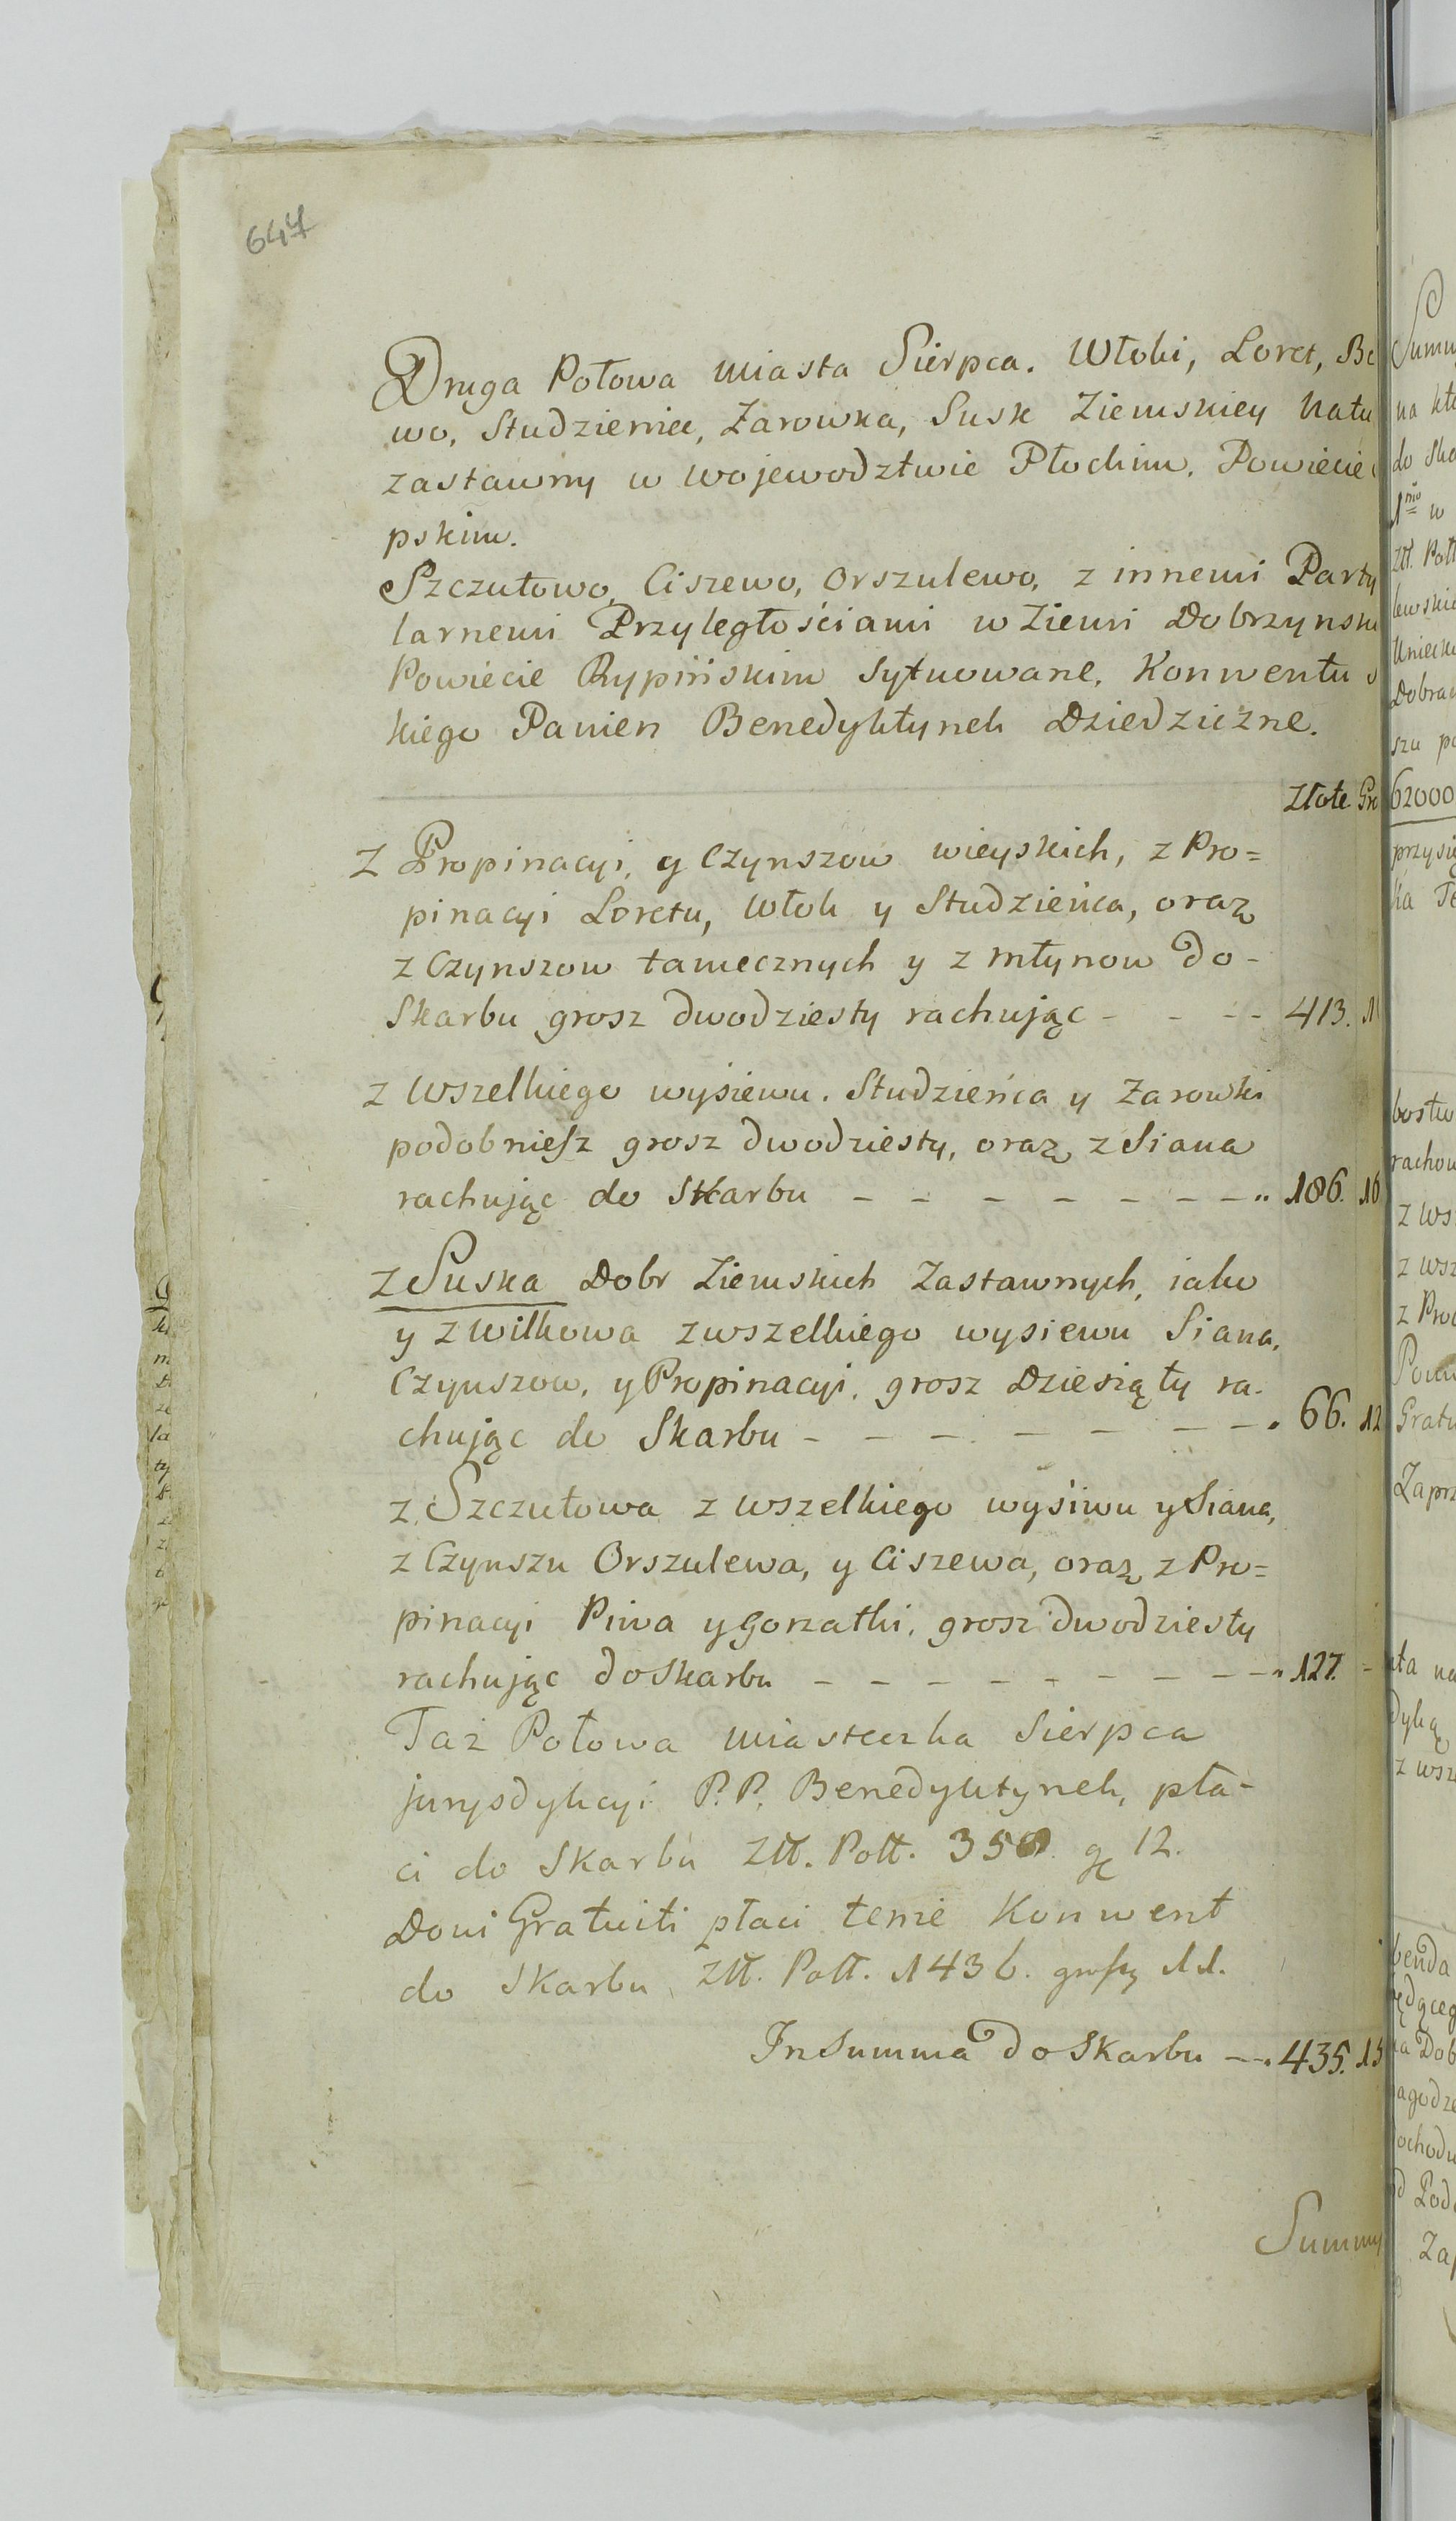 647
Druga Połowa miasta Sierpca. Włoki, Loret, Be
wo, Studzieniec, Zarowka, Susk Ziemskiey Natu
zastawny w wojewodztwie Płockim, Powiecie
pskim.
Szczutowo, Ciszewo, Orszulewo, z innemi Party
larnemi Przyległościami w Ziemi Dobrzynsk
Powiecie Rypińskim sytuowane, Konwentu
kiego Panien Benedyktynek Dziedziczne.
Złote Gro
Z Propinacyi, y Czynszow wieyskich, z Pro=
pinacyi Loretu, Włok y Studzieńca, oraz
z Czynszow tamecznych y z młynow do-
Skarbu grosz dwodziesty rachując - - - - 413. 1
z Wszelkiego wyśiewu. Studzieńca y Zarowki
podobnieſz grosz dwodziesty, oraz z Siana
rachując do Skarbu - - - - - - - 186. 16
z Suska Dobr Ziemskich Zastawnych, iako
y z Wilkowa z wszelkiego wysiewu Siana,
Czynszow, y Propinacyi, grosz Dziesiąty ra-
chując do Skarbu - - - - - - - 66. 12
z Szczutowa z wszelkiego wyśiwu y Siana,
z Czynszu Orszulewa, y Ciszewa, oraz z Pro=
pinacyi Piwa y Gorzałki, grosz dwodziesty
rachując do Skarbu - - - - - - - - 127. -
Taż Połowa miasteczka Sierpca
jurysdykcyi P.P. Benedyktynek, pła-
ci do Skarbu Złł. Poll. 358. gr 12.
Doni Gratuiti płaci tenże Konwent
do Skarbu Złł. Poll. 1436. groſzy 11.
In Summa do Skarbu -- 435. 15
Summy